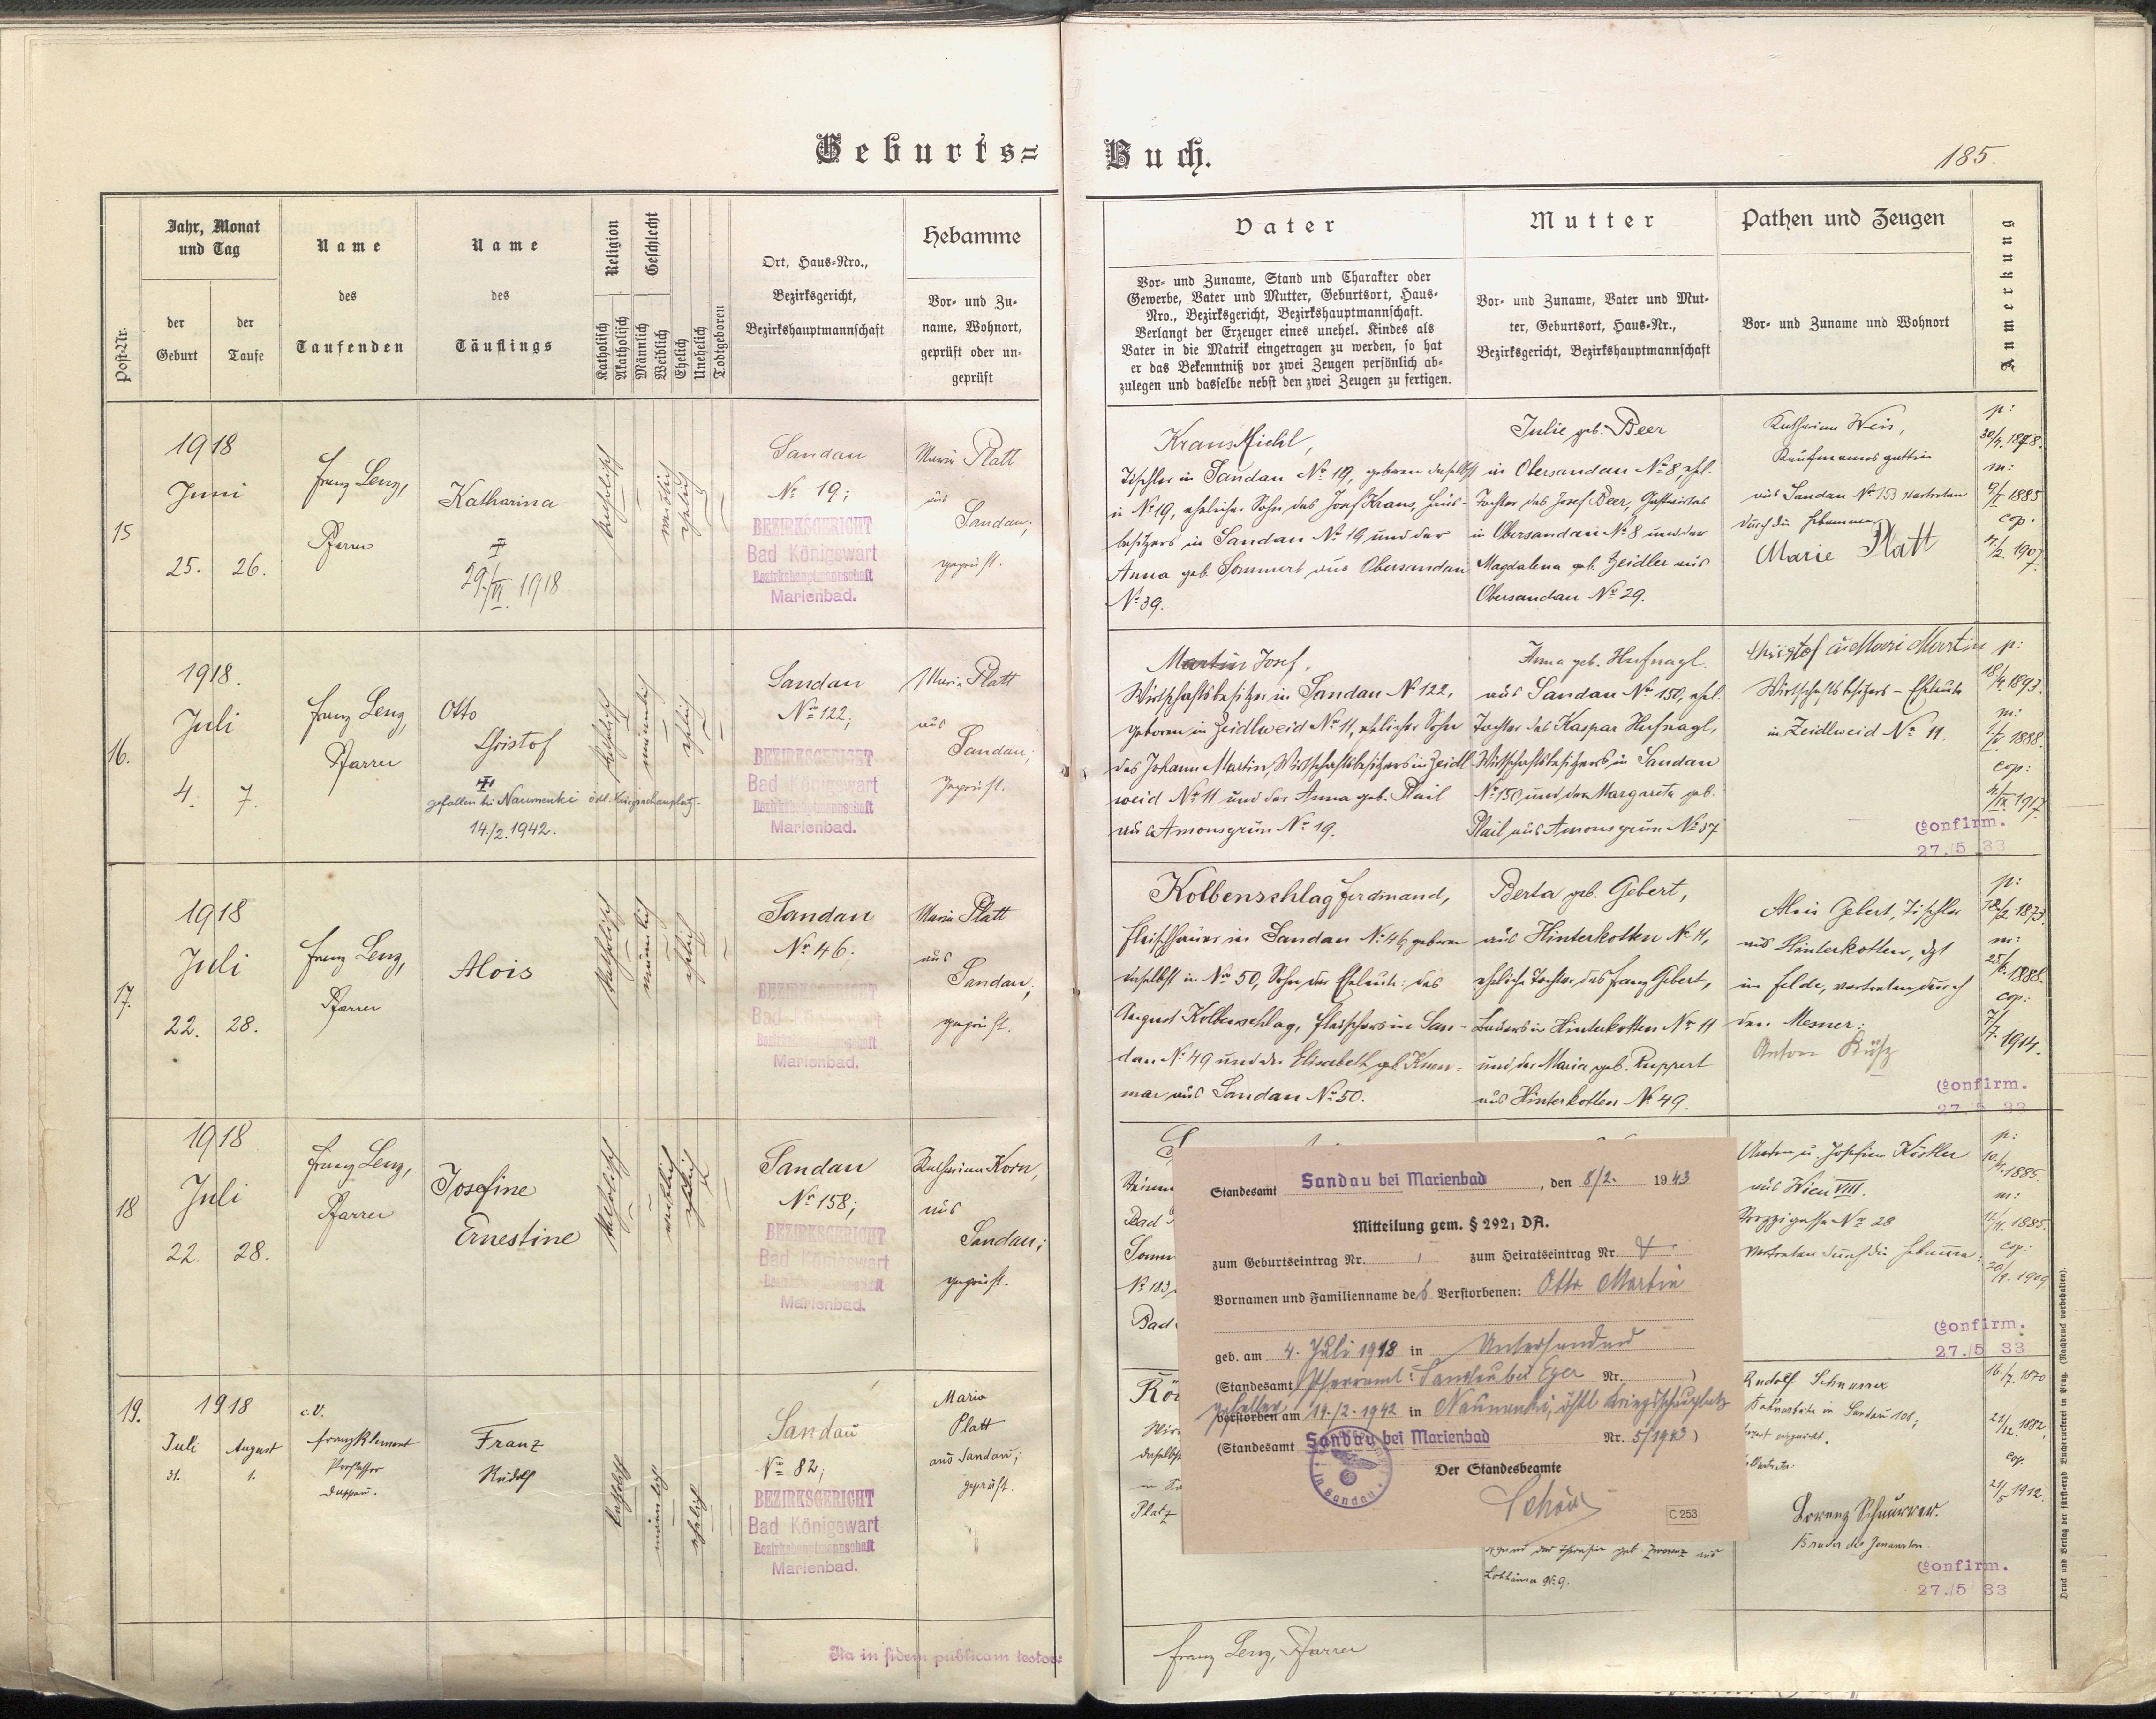 Geburts=
Buch.
185.
Post-Nr.
Jahr, Monat
und Tag
der
Geburt
der
Taufe
Name
des
Taufenden
Name
des
Täuflings
Religion
Katholisch
Akatholisch
Geschlecht
Männlich
Weiblich
Ehelich
Unehelich
Todtgeboren
Ort, Haus-Nro.,
Bezirksgericht,
Bezirkshauptmannschaft
Hebamme
Vor- und Zu-
name, Wohnort,
geprüft oder un-
geprüft
Vater
Vor- und Zuname, Stand und Charakter oder
Gewerbe, Vater und Mutter, Geburtsort, Haus-
Nro., Bezirksgericht, Bezirkshauptmannschaft.
Verlangt der Erzeuger eines unehel. Kindes als
Vater in die Matrik eingetragen zu werden, so hat
er das Bekenntniß vor zwei Zeugen persönlich ab-
zulegen und dasselbe nebst den zwei Zeugen zu fertigen.
Mutter
Vor- und Zuname, Vater und Mut-
ter, Geburtsort, Haus-Nr.,
Bezirksgericht, Bezirkshauptmannschaft
Pathen und Zeugen
Vor- und Zuname und Wohnort
Anmerkung
15
1918
Juni
25. 26.
Franz Lenz,
Pfarrer
Katharina
29./VI. 1918
katholisch
weiblich
ehelich
Sandau
No 19;
BEZIRKSGERICHT
Bad Königswart
Bezirkshauptmannschaft
Marienbad.
Maria Platt
aus
Sandau;
geprüft.
Kraus Michl,
Tischler in Sandau No 19, geboren daselbst
in No 19, ehelicher Sohn des Josef Kraus, Haus-
besitzers in Sandau No 19 und der
Anna geb. Sommert aus Obersandau
No 39.
Julie geb. Beer
in Obersandau No 8, ehel.
Tochter des Josef Beer, Gastwirtes
in Obersandau No 8 und der
Magdalena geb. Zeidler aus
Obersandau No 29.
Katharina Weis,
Kaufmannsgattin
aus Sandau No 153 vertreten
durch die Hebamme
Marie Platt
p:
30/4. 1878.
m:
1885
cop.
1907
16.
1918.
Juli
4. 7.
Franz Lenz,
Pfarrer
Otto
Christof
gefallen bei Naumenki östl. Kriegsschauplatz.
14./2. 1942.
katholisch
männlich
ehelich
Sandau
No 122;
BEZIRKSGERICHT
Bad Königswart
Bezirkshauptmannschaft
Marienbad.
Maria Platt
aus
Sandau;
geprüft.
Martin Josef,
Wirtschaftsbesitzer in Sandau No 122,
geboren in Zeidlweid No 11, ehelicher Sohn
des Johann Martin, Wirtschaftsbesitzers in Zeidl-
weid No 11 und der Anna geb. Plail
aus Amonsgrün No 19.
Anna geb. Hufnagl.
aus Sandau No 150, ehel.
Tochter des Kaspar Hufnagl,
Wirtschaftsbesitzers in Sandau
No 150 und der Margareta geb.
Plail aus Amonsgrün No 37
Christof u. Mari Martin
Wirtschaftsbesitzers - Eheleute
in Zeidlweid No 11.
p:
18/4. 1893.
m:
1888.
cop:
1917.
Confirm.
27./5 33
17.
1918
Juli
22. 28.
Franz Lenz,
Pfarrer
Alois
katholisch
männlich
ehelich
Sandau
No 46.
BEZIRKSGERICHT
Bad Königswart
Bezirkshauptmannschaft
Marienbad.
Maria Platt
aus
Sandau;
geprüft.
Kolbenschlag Ferdinand,
Fleischhauer in Sandau No 46, geboren
daselbst in No 50, Sohn der Eheleute: des
August Kolbenschlag, Fleischers in San-
dau No 49 und der Elisabeth geb. Krem-
mar aus Sandau No 50.
Berta geb. Gebert,
aus Hinterkotten No 11,
eheliche Tochter des Franz Gebert,
Bauers in Hinterkotten No 11
und der Maria geb. Ruppert
aus Hinterkotten No 49.
Alois Gebert, Tischler
aus Hinterkotten, dzt
im Felde, vertreten durch
den Mesner:
Anton
p:
18/2. 1873.
m:
1888.
cop:
7/7. 1914.
Confirm.
27 5 33
18
1918
Juli
22. 28.
Franz Lenz,
Pfarrer
Josefine
Ernestine
katholisch
weiblich
ehelich
Sandau
No 158;
BEZIRKSGERICHT
Bad Königswart
Bezirkshauptmannschaft
Marienbad.
Katharina Korn,
aus
Sandau;
geprüft.
Bad
No 183,
Bad
Anton u. Josefine Köstler
aus Wien VIII.
No 28
vertreten durch die Hebamme:
p:
1885.
m:
1885.
cop:
1909
Confirm.
27./5 33
Standesamt Sandau bei Marienbad, den 8/2. 1943
Mitteilung gem. § 292, DA.
zum Geburtseintrag Nr. zum Heiratseintrag Nr.
Vornamen und Familienname des Verstorbenen: Otto Martin
geb. am 4. Juli 1918 in Untersandau
(Standesamt Pfarramt: Sandau bei Eger Nr. )
gefallen
verstorben am 14./2. 1942 in Naumenki, östl. Kriegsschauplatz
(Standesamt Sandau bei Marienbad Nr. 5/1943)
Der Standesbeamte
Sandau
C 253
19.
1918
Juli August
31. 1.
c.V.
Franz Klement
Franz
Rudolf
katholisch
männlich
ehelich
Sandau
No 82;
BEZIRKSGERICHT
Bad Königswart
Bezirkshauptmannschaft
Marienbad.
Maria
Platt
aus Sandau;
geprüft.
daselbst
Platz
geb.
No 9.
Rudolf Schnurrer
in Sandau 108;
Lorenz Schnurrer.
Bruder des Genannten.
16./7. 1870
1882.
cop.
21/5 1912.
Confirm.
27./5 33
Ita in fidem publicam testor:
Franz Lenz, Pfarrer
Druck und Verlag der fürsterzb. Buchdruckerei in Prag. (Nachdruck vorbehalten).